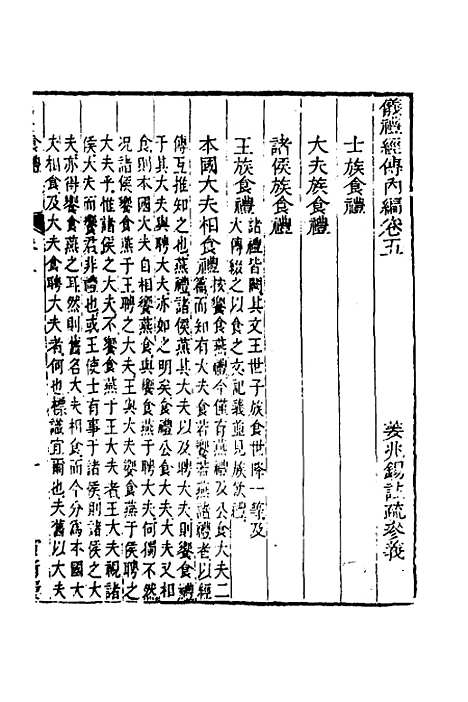 儀禮經傳內編卷五
姜兆錫註疏參義
士族食禮
大夫族食禮
諸侯族食禮
王族食禮
諸禮皆闕其文王世子族食世降一等及
大傳綴之以食之文記義並見族飲禮
本國大夫相食禮
按饗食燕禮今僅有燕禮公食大夫二
篇而知有大夫食若饗若燕諸禮者以經
傳互推知之也燕禮諸侯燕其大夫以及聘大夫則饗食禮
于其大夫與聘大夫亦如之明矣食禮公食大夫大夫又相
食則本國大夫自相饗燕食與饗食燕于聘大夫何獨不然
况諸侯饗食燕于王聘之大夫王與大夫饗食燕于侯聘之
大夫乎惟諸侯之大夫不饗食燕于大夫者王大夫視諸
侯大夫而饗君非禮也或王使士有事于諸侯則諸侯之大
夫亦得饗食燕之耳然則舊名大夫相食而今分為本國大
夫相食及大夫食聘大夫者何也標識宜爾也夫舊以大夫